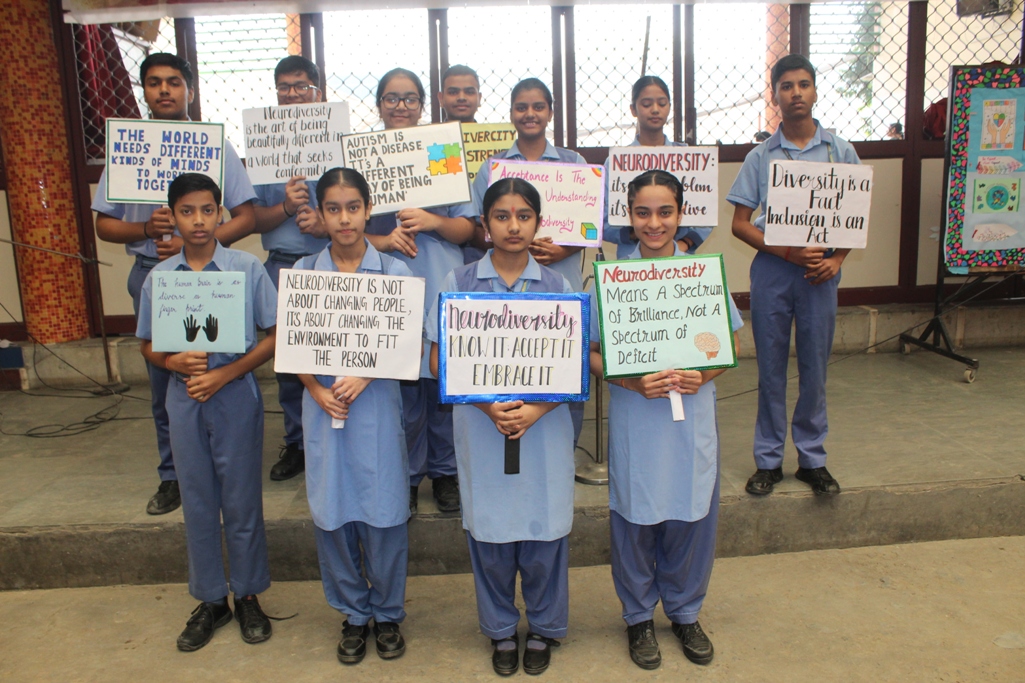 THE WORLD
NEEDS DIFFERENT
KINDS OF MINDS
TO WORK
TOGET
Neurodiversity
is the art of being
beautifully different in
a world that seeks
conformity
AUTISM IS
NOT A DISEASE
IT'S A
DIFFERENT
WAY OF BEING
HUMAN
DIVERCITY
STREN
Acceptance Is The
Understanding
NEURODIVERSITY:
Diversity is a
Fact
Inclusion is an
Act
The human brain is as
diverse a human
finger print
NEURODIVERSITY IS NOT
ABOUT CHANGING PEOPLE,
IT'S ABOUT CHANGING THE
ENVIRONMENT TO FIT
THE PERSON
Neurodiversity
KNOW IT·ACCEPT IT
EMBRACE IT
NEURODIVERSITY
MEANS A SPECTRUM
OF BRILLIANCE, NOT A
SPECTRUM OF
DEFICIT